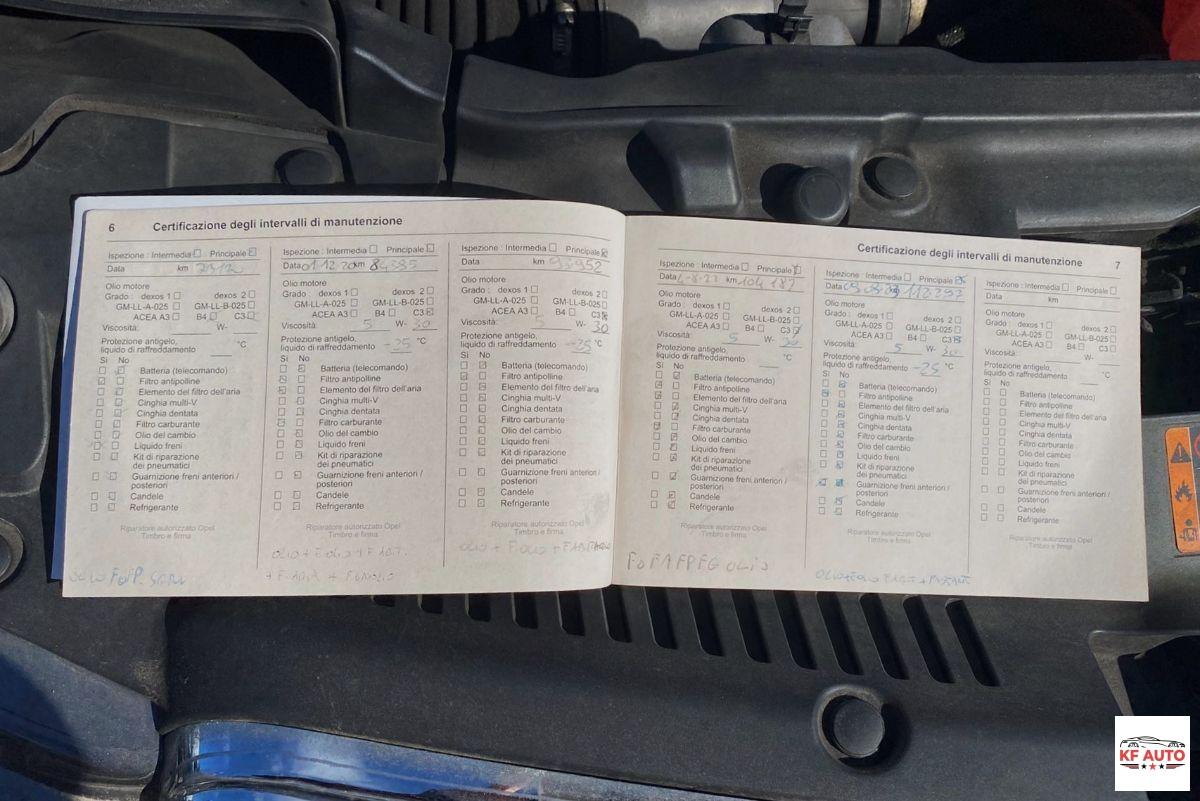 6 Certificazione degli intervalli di manutenzione
Ispezione : Intermedia Principale
Data km
Olio motore
Grado : dexos 1 dexos 2
GM-LL-A-025 GM-LL-B-025
ACEA A3 B4 C3
Viscosità: W-
Protezione antigelo,
liquido di raffreddamento °C
Sì No
Batteria (telecomando)
Filtro antipolline
Elemento del filtro dell'aria
Cinghia multi-V
Cinghia dentata
Filtro carburante
Olio del cambio
Liquido freni
Kit di riparazione
dei pneumatici
Guarnizione freni anteriori /
posteriori
Candele
Refrigerante
Riparatore autorizzato Opel
Timbro e firma
Ispezione : Intermedia Principale
Data 01 12 20 km 84385
Olio motore
Grado : dexos 1 dexos 2
GM-LL-A-025 GM-LL-B-025
ACEA A3 B4 C3
Viscosità: 5 W- 30
Protezione antigelo,
liquido di raffreddamento -25 °C
Sì No
Batteria (telecomando)
Filtro antipolline
Elemento del filtro dell'aria
Cinghia multi-V
Cinghia dentata
Filtro carburante
Olio del cambio
Liquido freni
Kit di riparazione
dei pneumatici
Guarnizione freni anteriori /
posteriori
Candele
Refrigerante
Riparatore autorizzato Opel
Timbro e firma
Ispezione : Intermedia Principale
Data km 93952
Olio motore
Grado : dexos 1 dexos 2
GM-LL-A-025 GM-LL-B-025
ACEA A3 B4 C3
Viscosità: 5 W- 30
Protezione antigelo,
liquido di raffreddamento -25 °C
Sì No
Batteria (telecomando)
Filtro antipolline
Elemento del filtro dell'aria
Cinghia multi-V
Cinghia dentata
Filtro carburante
Olio del cambio
Liquido freni
Kit di riparazione
dei pneumatici
Guarnizione freni anteriori /
posteriori
Candele
Refrigerante
Riparatore autorizzato Opel
Timbro e firma
Certificazione degli intervalli di manutenzione 7
Ispezione : Intermedia Principale
Data km 104 182
Olio motore
Grado : dexos 1 dexos 2
GM-LL-A-025 GM-LL-B-025
ACEA A3 B4 C3
Viscosità: 5 W- 30
Protezione antigelo,
liquido di raffreddamento °C
Sì No
Batteria (telecomando)
Filtro antipolline
Elemento del filtro dell'aria
Cinghia multi-V
Cinghia dentata
Filtro carburante
Olio del cambio
Liquido freni
Kit di riparazione
dei pneumatici
Guarnizione freni anteriori /
posteriori
Candele
Refrigerante
Riparatore autorizzato Opel
Timbro e firma
Ispezione : Intermedia Principale
Data
Olio motore
Grado : dexos 1 dexos 2
GM-LL-A-025 GM-LL-B-025
ACEA A3 B4 C3
Viscosità: 5 W- 30
Protezione antigelo,
liquido di raffreddamento -25 °C
Sì No
Batteria (telecomando)
Filtro antipolline
Elemento del filtro dell'aria
Cinghia multi-V
Cinghia dentata
Filtro carburante
Olio del cambio
Liquido freni
Kit di riparazione
dei pneumatici
Guarnizione freni anteriori /
posteriori
Candele
Refrigerante
Riparatore autorizzato Opel
Timbro e firma
Ispezione : Intermedia Principale
Data km
Olio motore
Grado : dexos 1 dexos 2
GM-LL-A-025 GM-LL-B-025
ACEA A3 B4 C3
Viscosità: W-
Protezione antigelo,
liquido di raffreddamento °C
Sì No
Batteria (telecomando)
Filtro antipolline
Elemento del filtro dell'aria
Cinghia multi-V
Cinghia dentata
Filtro carburante
Olio del cambio
Liquido freni
Kit di riparazione
dei pneumatici
Guarnizione freni anteriori /
posteriori
Candele
Refrigerante
Riparatore autorizzato Opel
Timbro e firma
KF AUTO